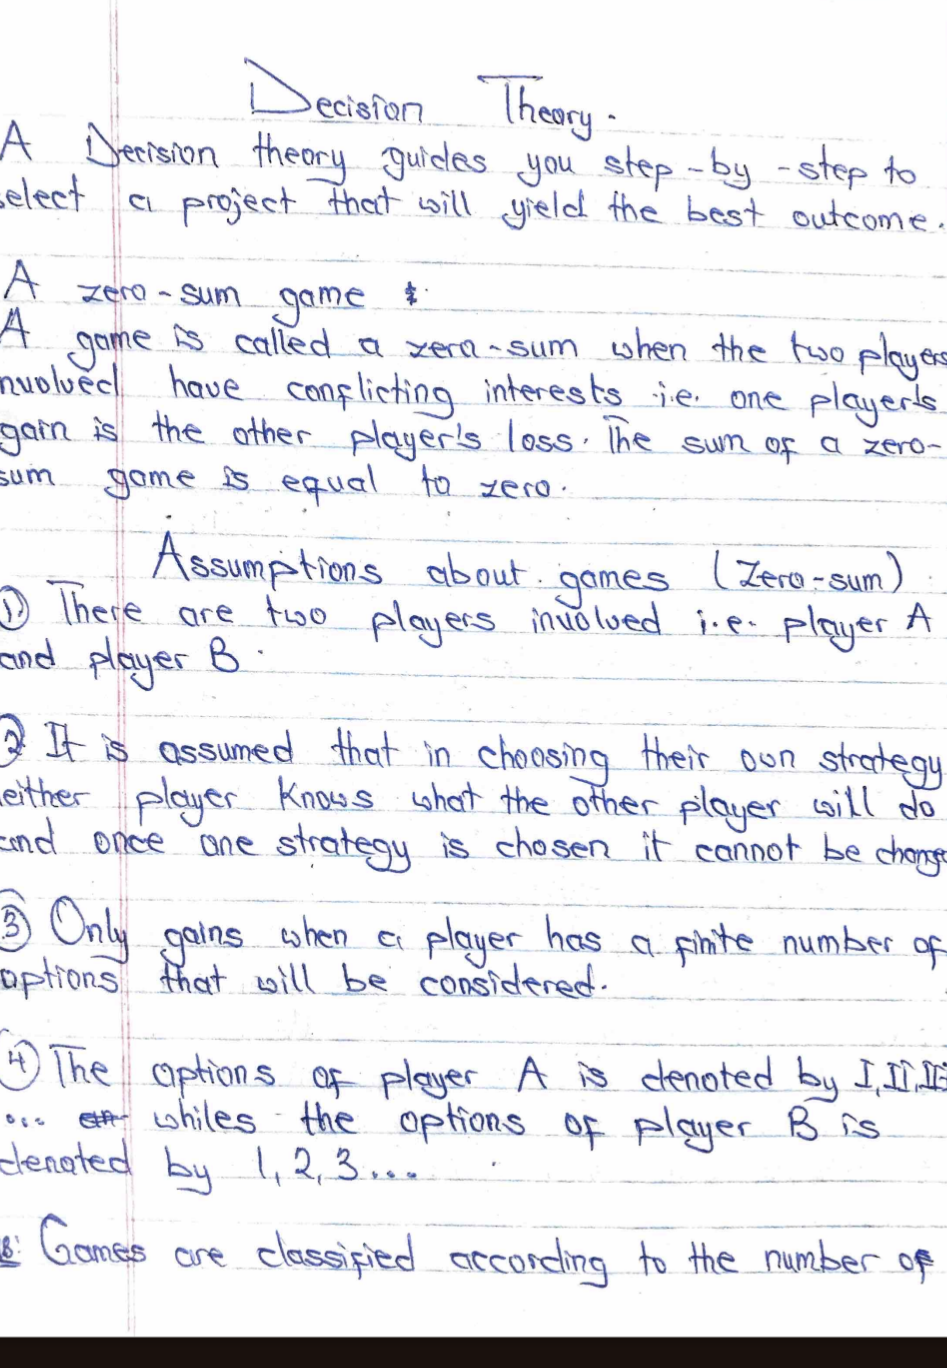 Decision Theory.
A Decision theory guides you step-by-step to
select a project that will yield the best outcome.
A zero-sum game
A game is called a zero-sum when the two players
nvolved have conflicting interests i.e. one player's
gain is the other player's loss. The sum of a zero-
sum game is equal to zero.
Assumptions about games (Zero-sum)
① There are two players involved i.e. player A
and player B.
② It is assumed that in choosing their own strategy
either player knows what the other player will do
and once one strategy is chosen it cannot be change
③ Only gains when a player has a finite number of
options that will be considered.
④ The options of player A is denoted by I, II, III
... whiles the options of player B is
denoted by 1, 2, 3...
B: Games are classified according to the number of